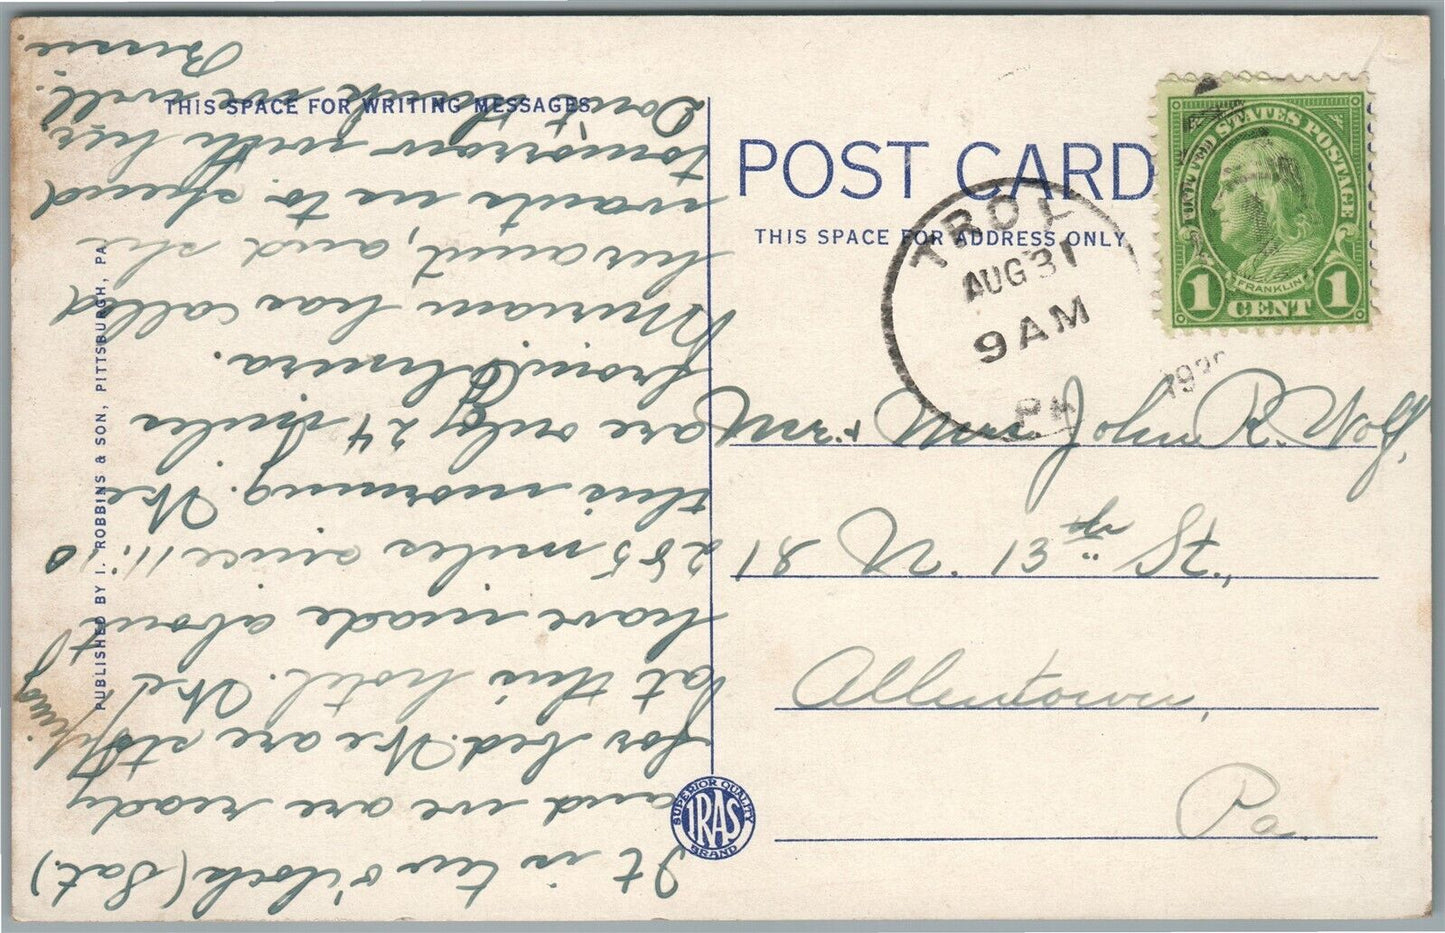 THIS SPACE FOR WRITING MESSAGES
POST CARD
THIS SPACE FOR ADDRESS ONLY
UNITED STATES POSTAGE
FRANKLIN
1 CENT 1
AUG 31
9 AM
PA
Mr. & Mrs. John R.
81 N. 13th St.,
Allentown,
Pa.
It is two o'clock (Sat.)
and we are ready
for bed. We are stopping
at this hotel. We
have made about
285 miles since 11:10
this morning. We
are only 24 miles
from Elmira.
Miriam has called
her aunt, and she
wants us to spend
tomorrow with her,
Don't think we will.
Bessie
PUBLISHED BY I. ROBBINS & SON, PITTSBURGH, PA.
SUPERIOR QUALITY
IRAS
BRAND